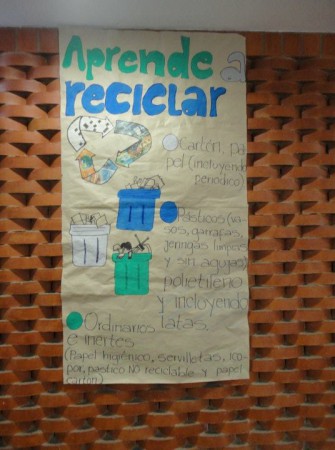 Aprende a
reciclar
Cartón, pa
pel (incluyendo
periodico)
Plásticos (va
sos, garrafas,
jeringas limpias
y sin agujas)
polietileno
y incluyendo
latas.
Ordinarios
e inertes
(Papel higiénico, servilletas, ico
por, plastico NO reciclable y papel
carbón)